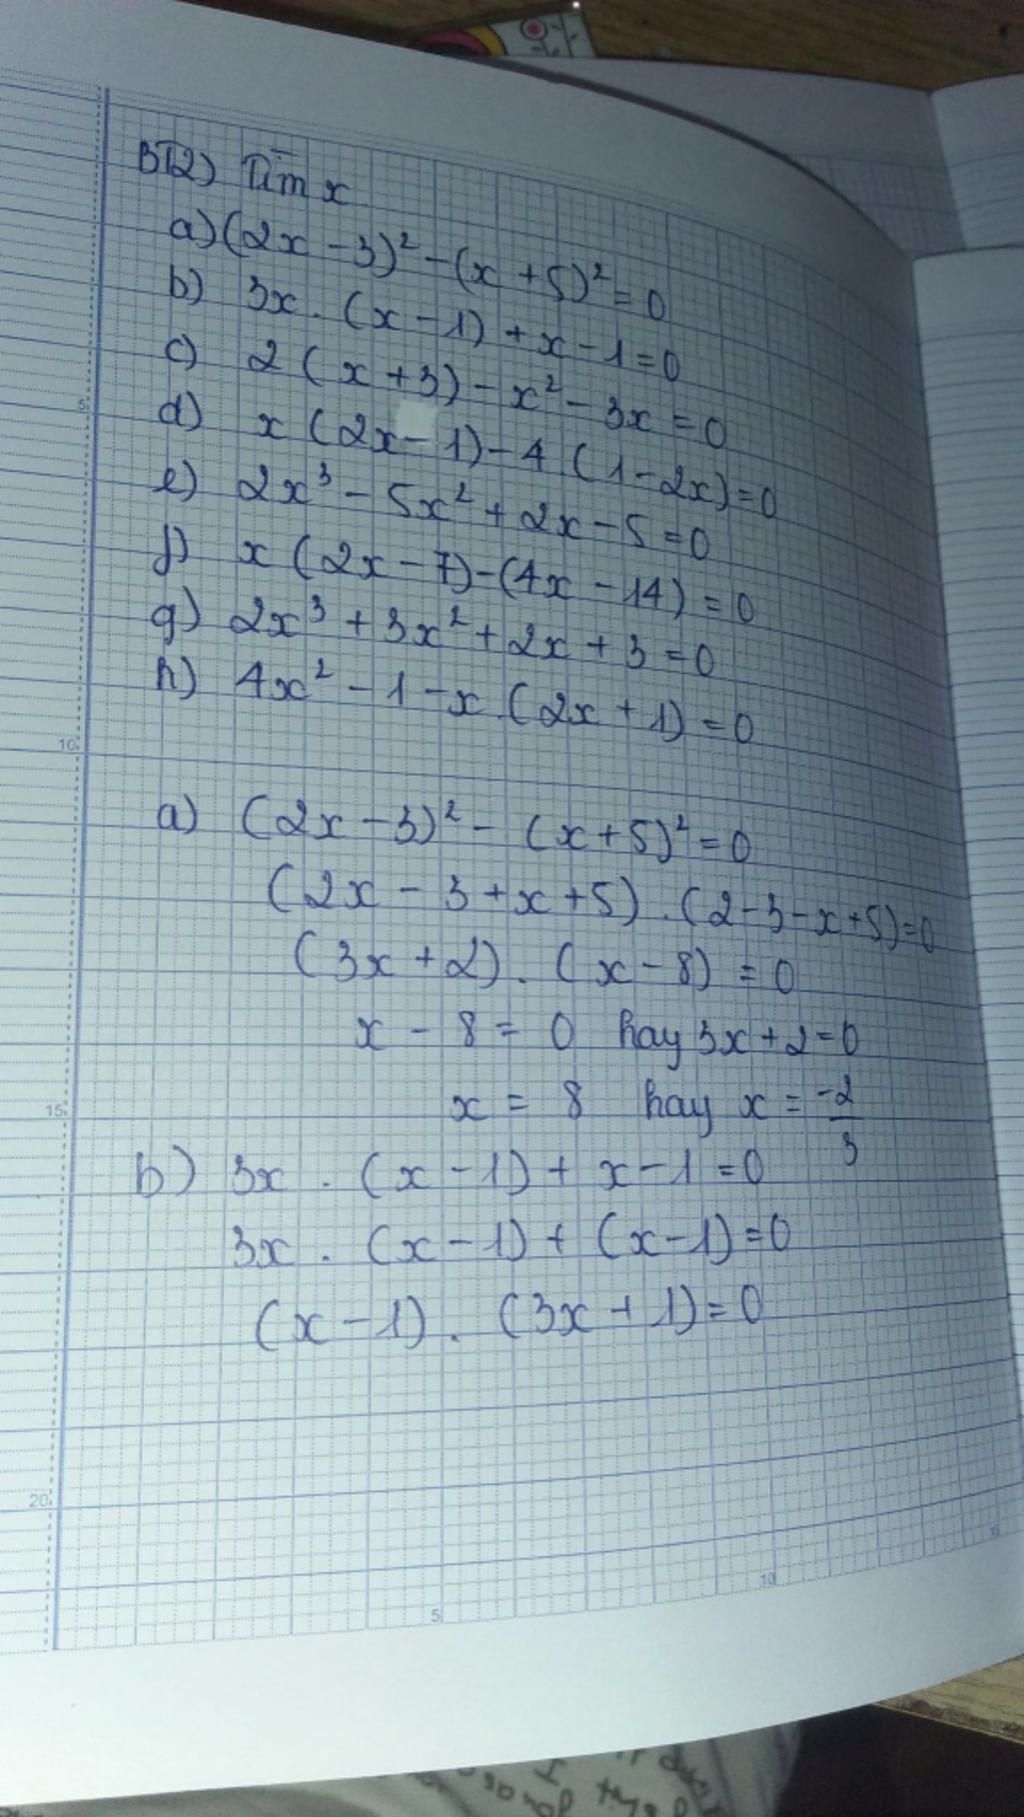 BT2) Tìm x
a) (2x - 3)² - (x + 5)² = 0
b) 3x . (x - 1) + x - 1 = 0
c) 2 (x + 3) - x² - 3x = 0
d) x (2x - 1) - 4 (1 - 2x) = 0
e) 2x³ - 5x² + 2x - 5 = 0
f) x (2x - 7) - (4x - 14) = 0
g) 2x³ + 3x² + 2x + 3 = 0
h) 4x² - 1 - x (2x + 1) = 0
a) (2x - 3)² - (x + 5)² = 0
(2x - 3 + x + 5) . (2 - 3 - x + 5) = 0
(3x + 2) . (x - 8) = 0
x - 8 = 0 hay 3x + 2 = 0
x = 8 hay x = -2/3
b) 3x . (x - 1) + x - 1 = 0
3x . (x - 1) + (x - 1) = 0
(x - 1) . (3x + 1) = 0
5
10
15
20
5
10
15